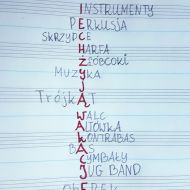 INSTRUMENTY
PERKUSJA
SKRZYPCE
HARFA
ŻŁOBCOKI
MUZYKA
J
TRÓJKĄT
WALC
ALTÓWKA
KONTRABAS
BAS
CYMBAŁY
JUG BAND